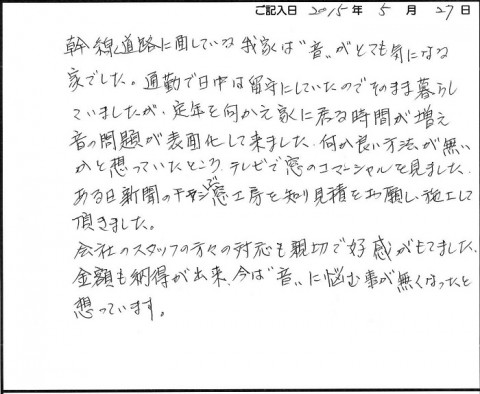 ご記入日 2015年 5月 27日
幹線道路に面している我家は"音"がとても気になる
家でした。通勤で日中は留守にしていたのでそのまま暮らし
ていましたが、定年を向かえ家に居る時間が増え
音の問題が表面化して来ました。何か良い方法が無い
かと想っていたところ、テレビで窓のコマーシャルを見ました。
ある日新聞のチラシで窓工房を知り見積をお願いし、施工して
頂きました。
会社のスタッフの方々の対応も親切で好感がもてました。
金額も納得が出来、今は"音"に悩む事が無くなったと
想っています。